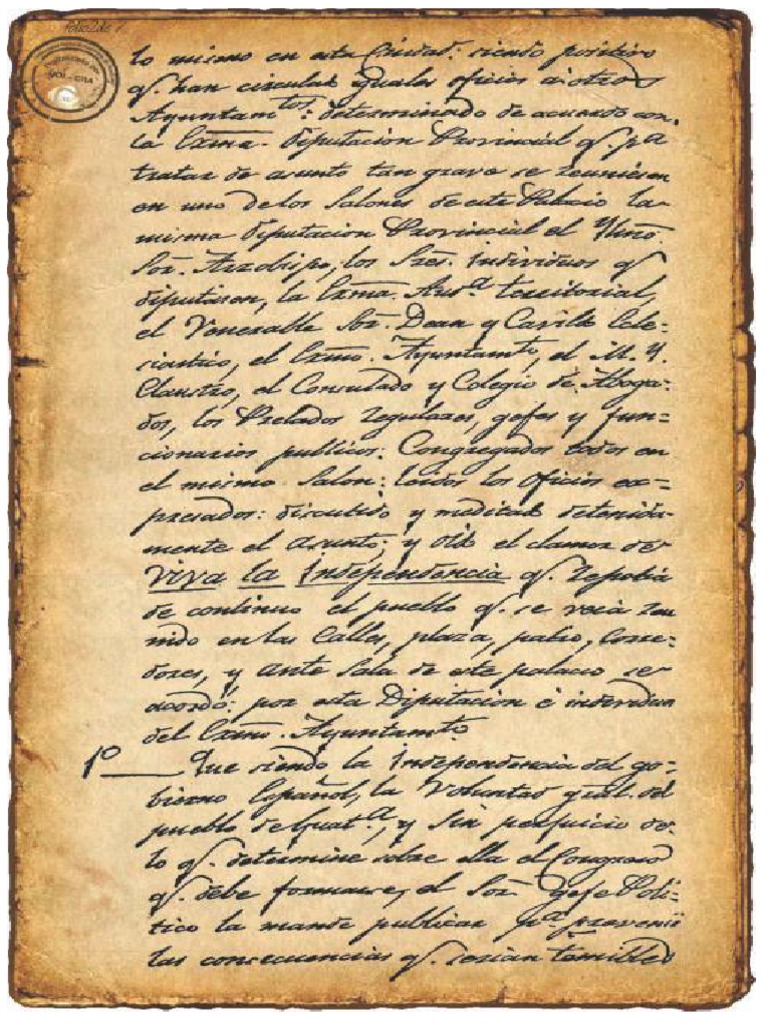 Folio 2 de 7
lo mismo en esta Ciudad: siendo positivo
q.e han circulad iguales oficios a otros
Ayuntam.tos: determinado de acuerdo con
la Exma. Diputacion Provincial q. p.a
tratar de asunto tan grave se reuniesen
en uno de los Salones de este Palacio la
misma Diputacion Provincial el Yllmo.
Sor. Arzobispo, los Sres. individuos q
diputasen, la Exma. Aud.a territorial,
el Venerable Sor. Dean y Cavildo Ecle=
siastico, el Exmo. Ayuntam.to, el M. Y.
Claustro, el Consulado y Colegio de Aboga=
dos, los Prelados regulares, gefes y fun=
cionarios publicos: Congregados todos en
el mismo Salon: leidos los Oficios ex=
presados: discutido y meditad detenida
mente el asunto; y oid el clamor de
Viva la Independencia q. repetia
de continuo el pueblo q. se veia reu
nido en las Calles, plaza, patio, Corre=
dores, y ante Sala de este palacio se
acordó: por esta Diputacion é individuos
del Exmo. Ayuntam.to
1º Que siendo la Independencia del go=
bierno Español, la Voluntad gral. del
pueblo de Guat.a, y Sin perjuicio de
lo q. determine sobre ella el Congreso
q. debe formarse, el Sor. Gefe Poli=
tico la mande publicar p.a prevenir
las consecuencias q. serian temibles